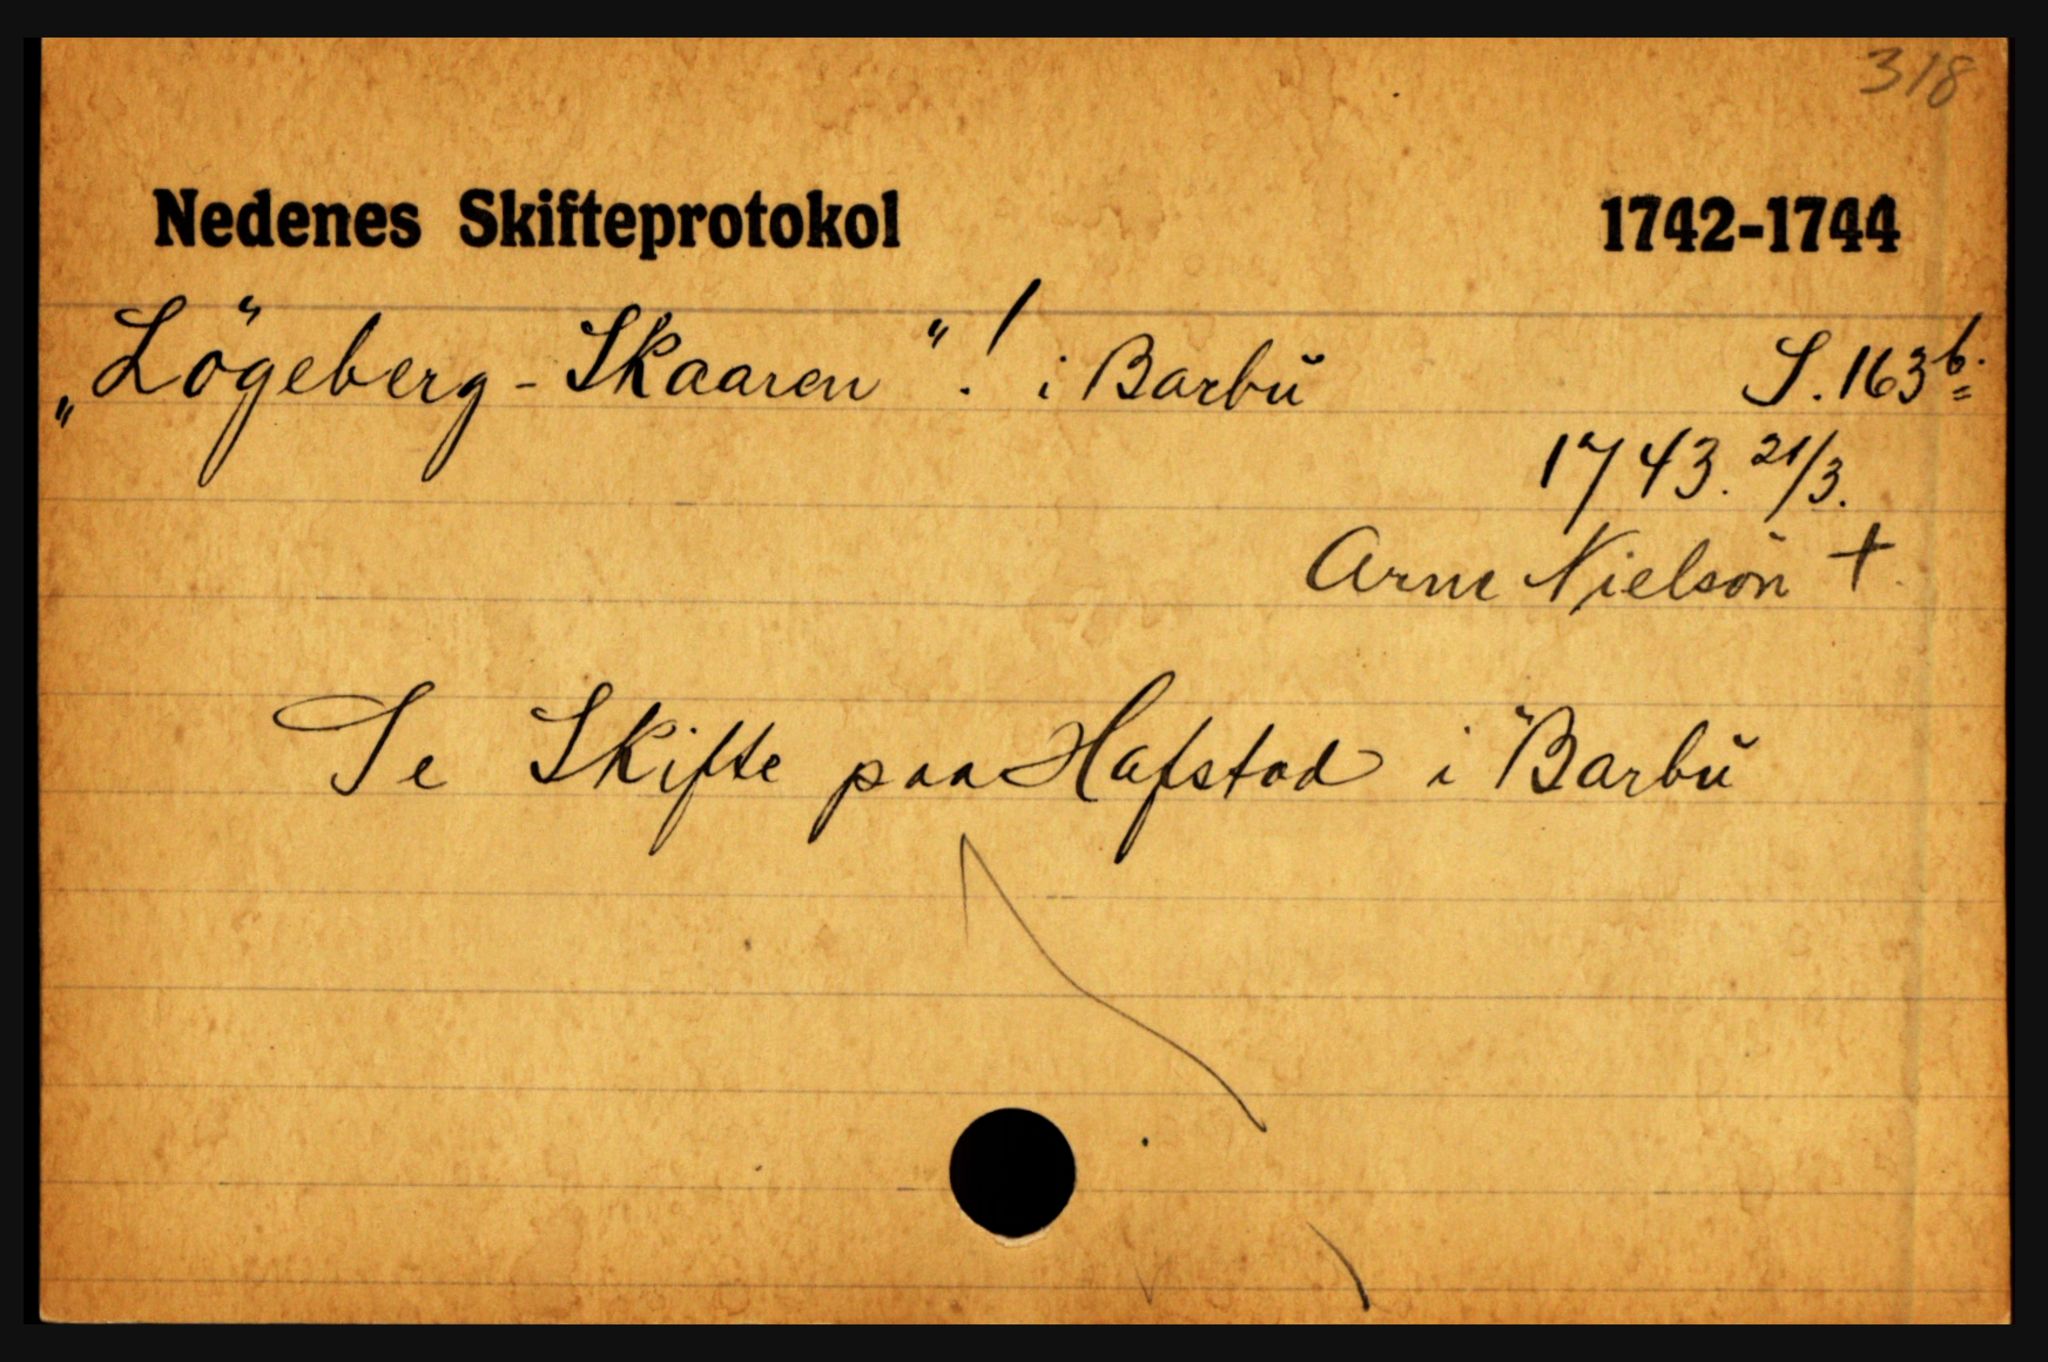 318
Nedenes Skifteprotokol 1742-1744
„Lögeberg-Skaaren“! i Barbŭ S. 163b.
1743. 21/3.
Arne Nielsön †
Se Skifte paa Hafstad i Barbŭ